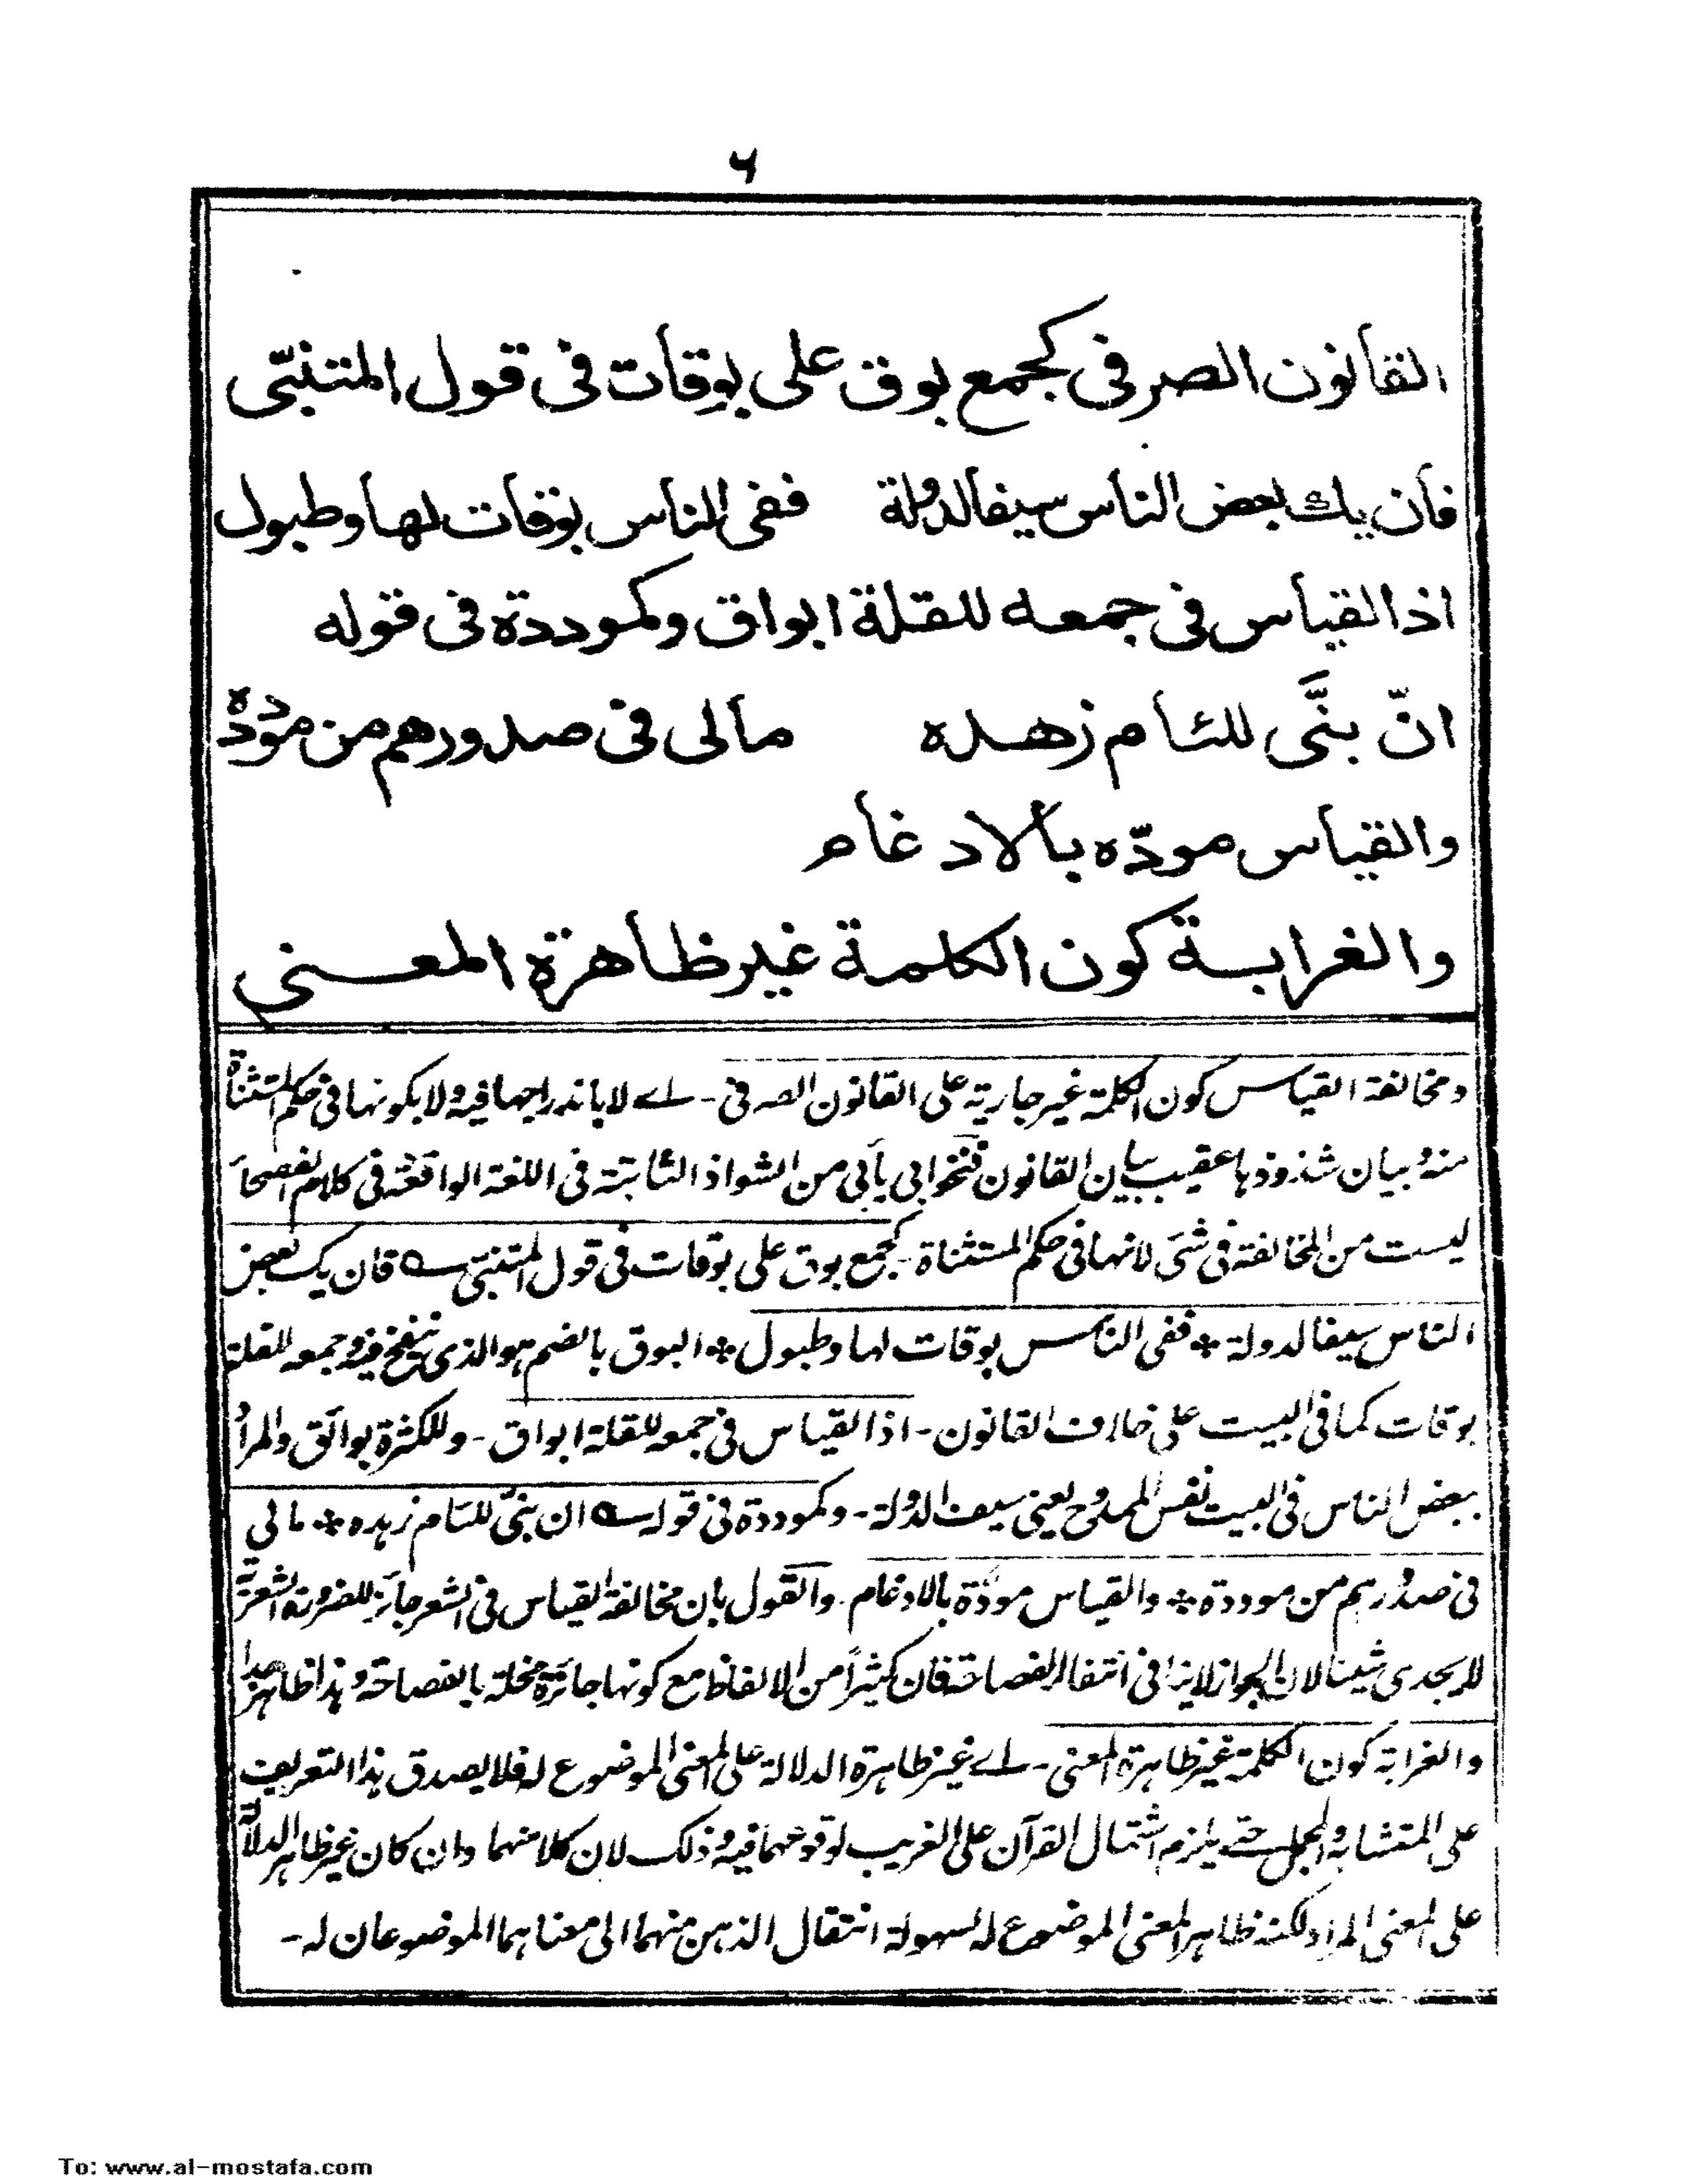 ٦
القانون الصرفى كجمع بوق على بوقات فى قول المتنبّى
فان يك بعض الناس سيفا لدولة ففى الناس بوقات لها وطبول
اذ القياس فى جمعه للقلة ابواق وكموددة فى قوله
انّ بنَّى للئام زهده مالى فى صدورهم من موْددَه
والقياس مودّه بالادغام
والغرابة كون الكلمة غير ظاهرة المعنى
ومخالفة القياس كون الكلمة غير جارية على القانون الصرفى - اے لا باندراجها فيه ولا بكونها فى حكم المستثناة
منه وبيان شذوذها عقيب بيان القانون فنحو ابى يأبى من الشواذ الثابتة فى اللغة الواقعة فى كلام الفصحاء
ليست من المخالفة فى شئ لانها فى حكم المستثناة - كجمع بوق على بوقات فى قول المتنبّى فان يك بعض
الناس سيفا لدولة * ففى الناس بوقات لها وطبول * البوق بالضم هو الذى ينفخ فيه وجمعه للقلة
بوقات كما فى البيت على خلاف القانون - اذ القياس فى جمعه للقلة ابواق - وللكثرة بوائق والمراد
ببعض الناس فى البيت نفس الممدوح يعنى سيف الدولة - وكموددة فى قوله ان بنىّ للئام زهده * ما لى
فى صدورهم من موددة * والقياس مودّة بالادغام - والقول بان مخالفة القياس فى الشعر جائز للضرورة الشعرية
لا يجدى شيئا لان الجواز لا ينافى انتفاء الفصاحة فان كثيراً من الالفاظ مع كونها جائزة مخلة بالفصاحة وهذا ظاهر جدا
والغرابة كون الكلمة غير ظاهرة المعنى - اے غير ظاهرة الدلالة على المعنى الموضوع له فلا يصدق هذا التعريف
على المتشابه والمجمل حتے يلزم اشتمال القرآن على الغريب لوقوعهما فيه وذلك لان كلا منهما وان كان غير ظاهر الدلالة
على المعنى المراد لكنه ظاهر المعنى الموضوع له لسهولة انتقال الذهن منهما الى معناهما الموضوعان له -
To: www.al-mostafa.com